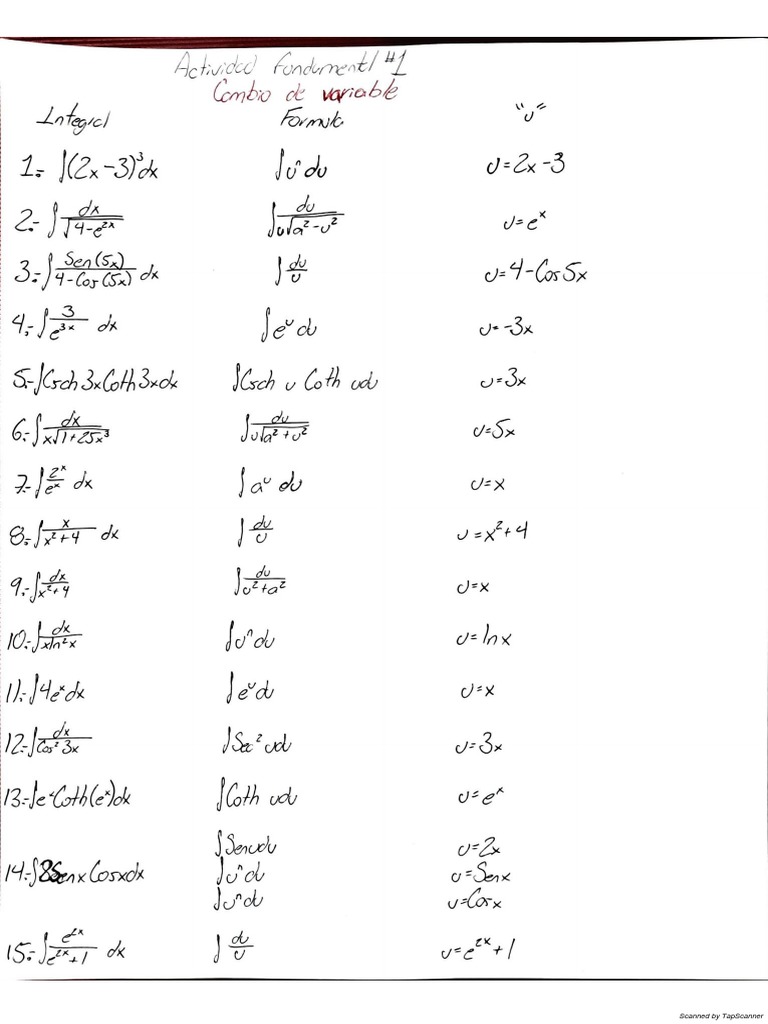 Actividad Fundamentl #1
Cambio de variable
Integral Formula "u"
1.- ∫(2x-3)³dx ∫uⁿdu u=2x-3
2.- ∫dx/√(4-e²ˣ) ∫du/(u√(a²-u²)) u=eˣ
3.- ∫Sen(5x)/(4-Cos(5x)) dx ∫du/u u=4-Cos5x
4.- ∫3/e³ˣ dx ∫eᵘdu u=-3x
5.- ∫Csch3xCoth3xdx ∫Csch u Coth udu u=3x
6.- ∫dx/(x√(1+25x³)) ∫du/(u√(a²+u²)) u=5x
7.- ∫2ˣ/eˣ dx ∫aᵘ du u=x
8.- ∫x/(x²+4) dx ∫du/u u=x²+4
9.- ∫dx/(x²+4) ∫du/(u²+a²) u=x
10.- ∫dx/(xln²x) ∫uⁿdu u=lnx
11.- ∫4eˣdx ∫eᵘdu u=x
12.- ∫dx/(Cos²3x) ∫Sec²udu u=3x
13.- ∫eˣCoth(eˣ)dx ∫Coth udu u=eˣ
∫Senudu u=2x
14.- ∫8SenxCosxdx ∫uⁿdu u=Senx
∫uⁿdu u=Cosx
15.- ∫e²ˣ/(e²ˣ+1) dx ∫du/u u=e²ˣ+1
Scanned by TapScanner